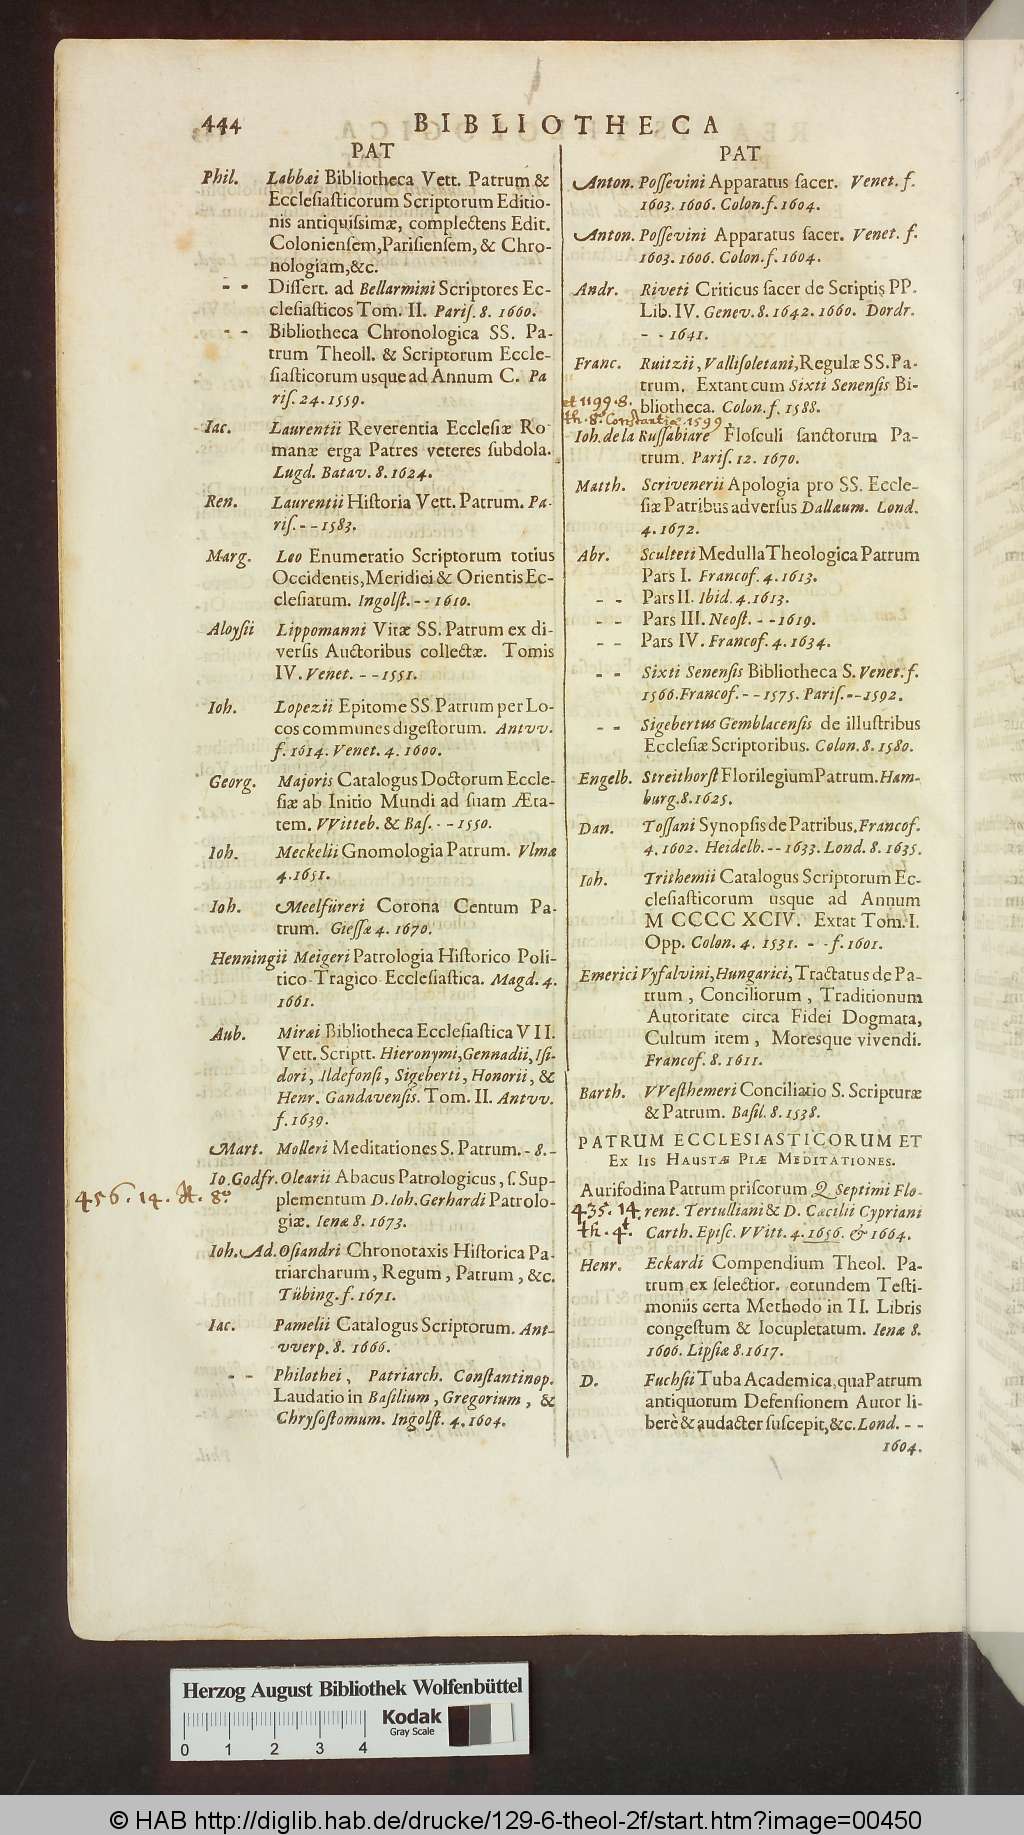 444 BIBLIOTHECA
PAT
Phil. Labbæi Bibliotheca Vett. Patrum &
Ecclesiasticorum Scriptorum Editio-
nis antiquissimæ, complectens Edit.
Coloniensem, Parisiensem, & Chro-
nologiam, &c.
- - Dissert. ad Bellarmini Scriptores Ec-
clesiasticos Tom. II. Paris. 8. 1660.
- - Bibliotheca Chronologica SS. Pa-
trum Theoll. & Scriptorum Eccle-
siasticorum usque ad Annum C. Pa
ris. 24. 1559.
Iac. Laurentii Reverentia Ecclesiæ Ro-
manæ erga Patres veteres subdola.
Lugd. Batav. 8. 1624.
Ren. Laurentii Historia Vett. Patrum. Pa-
ris. - - 1583.
Marg. Leo Enumeratio Scriptorum totius
Occidentis, Meridiei & Orientis Ec-
clesiarum. Ingolst. - - 1610.
Aloysii Lippomanni Vitæ SS. Patrum ex di-
versis Auctoribus collectæ. Tomis
IV. Venet. - - 1551.
Ioh. Lopezii Epitome SS. Patrum per Lo-
cos communes digestorum. Antvv.
f. 1614. Venet. 4. 1600.
Georg. Majoris Catalogus Doctorum Eccle-
siæ ab Initio Mundi ad suam Æta-
tem. VVitteb. & Bas. - - 1550.
Ioh. Meckelii Gnomologia Patrum. Vlmæ
4. 1651.
Ioh. Meelfüreri Corona Centum Pa-
trum. Giessæ 4. 1670.
Henningii Meigeri Patrologia Historico Poli-
tico-Tragico Ecclesiastica. Magd. 4.
1661.
Aub. Miræi Bibliotheca Ecclesiastica VII.
Vett. Scriptt. Hieronymi, Gennadii, Isi-
dori, Ildefonsi, Sigeberti, Honorii, &
Henr. Gandavensis. Tom. II. Antvv.
f. 1639.
Mart. Molleri Meditationes S. Patrum. - 8. -
Io. Godfr. Olearii Abacus Patrologicus, s. Sup-
456. 14. 8º plementum D. Ioh. Gerhardi Patrolo-
giæ. Ienæ 8. 1673.
Ioh. Ad. Osiandri Chronotaxis Historica Pa-
triarcharum, Regum, Patrum, &c.
Tübing. f. 1671.
Iac. Pamelii Catalogus Scriptorum. Ant-
vverp. 8. 1666.
- - Philothei, Patriarch. Constantinop.
Laudatio in Basilium, Gregorium, &
Chrysostomum. Ingolst. 4. 1604.
Phil.
PAT
Anton. Possevini Apparatus sacer. Venet. f.
1603. 1606. Colon. f. 1604.
Anton. Possevini Apparatus sacer. Venet. f.
1603. 1606. Colon. f. 1604.
Andr. Riveti Criticus sacer de Scriptis PP.
Lib. IV. Genev. 8. 1642. 1660. Dordr.
- - 1641.
Franc. Ruitzii, Vallisoletani, Regulæ SS. Pa-
trum. Extant cum Sixti Senensis Bi-
et 1199. 8. bliotheca. Colon. f. 1588.
th. 8º Constantiæ 1599.
Ioh. de la Russabiare Flosculi sanctorum Pa-
trum. Paris. 12. 1670.
Matth. Scrivenerii Apologia pro SS. Eccle-
siæ Patribus adversus Dallæum. Lond.
4. 1672.
Abr. Sculteti Medulla Theologica Patrum
Pars I. Francof. 4. 1613.
- - Pars II. Ibid. 4. 1613.
- - Pars III. Neost. - - 1619.
- - Pars IV. Francof. 4. 1634.
- - Sixti Senensis Bibliotheca S. Venet. f.
1566. Francof. - - 1575. Paris. - - 1592.
- - Sigebertus Gemblacensis de illustribus
Ecclesiæ Scriptoribus. Colon. 8. 1580.
Engelb. Streithorst Florilegium Patrum. Ham-
burg. 8. 1625.
Dan. Tossani Synopsis de Patribus. Francof.
4. 1602. Heidelb. - - 1633. Lond. 8. 1635.
Ioh. Trithemii Catalogus Scriptorum Ec-
clesiasticorum usque ad Annum
M CCCC XCIV. Extat Tom. I.
Opp. Colon. 4. 1531. - - f. 1601.
Emerici Vyfalvini, Hungarici, Tractatus de Pa-
trum, Conciliorum, Traditionum
Autoritate circa Fidei Dogmata,
Cultum item, Moresque vivendi.
Francof. 8. 1611.
Barth. VVesthemeri Conciliatio S. Scripturæ
& Patrum. Basil. 8. 1538.
PATRUM ECCLESIASTICORUM ET
EX IIS HAUSTÆ PIÆ MEDITATIONES.
Aurifodina Patrum priscorum Q. Septimi Flo-
435. 14. rent. Tertulliani & D. Cæcilii Cypriani
th. 4t. Carth. Episc. VVitt. 4. 1656. & 1664.
Henr. Eckardi Compendium Theol. Pa-
trum ex selectior. eorundem Testi-
moniis certa Methodo in II. Libris
congestum & locupletatum. Ienæ 8.
1606. Lipsiæ 8. 1617.
D. Fuchsii Tuba Academica, qua Patrum
antiquorum Defensionem Autor li-
berè & audacter suscepit, &c. Lond. - -
1604.
Herzog August Bibliothek Wolfenbüttel
Kodak
Gray Scale
0 1 2 3 4
© HAB http://diglib.hab.de/drucke/129-6-theol-2f/start.htm?image=00450